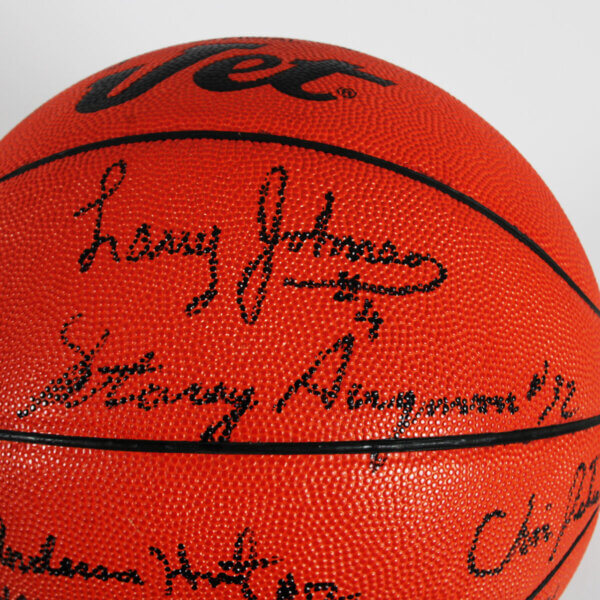 Jet®
Larry Johnson
#4
Stacey Augmon #32
Anderson Hunt